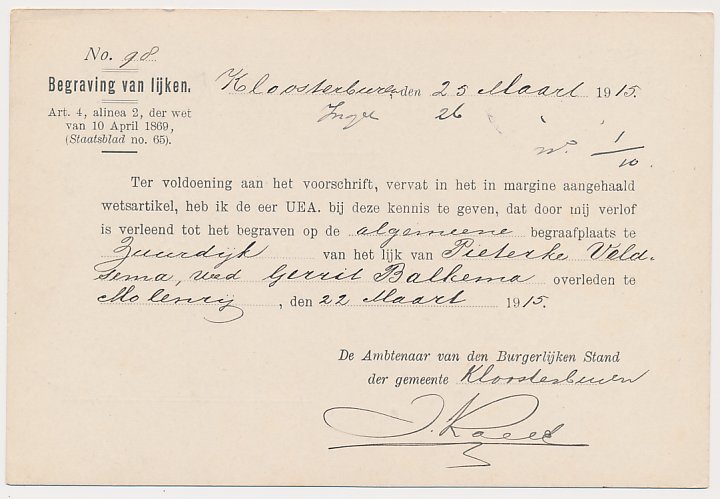 No. 98
Begraving van lijken.
Art. 4, alinea 2, der wet
van 10 April 1869,
(Staatsblad no. 65).
Kloosterburen, den 25 Maart 1915.
Inge 26 " "
no. 1/10
Ter voldoening aan het voorschrift, vervat in het in margine aangehaald
wetsartikel, heb ik de eer UEA. bij deze kennis te geven, dat door mij verlof
is verleend tot het begraven op de algemeene begraafplaats te
Zuurdijk van het lijk van Pieterke Veld-
sema, wed Gerrit Balkema overleden te
Molenrij, den 22 Maart 1915.
De Ambtenaar van den Burgerlijken Stand
der gemeente Kloosterburen